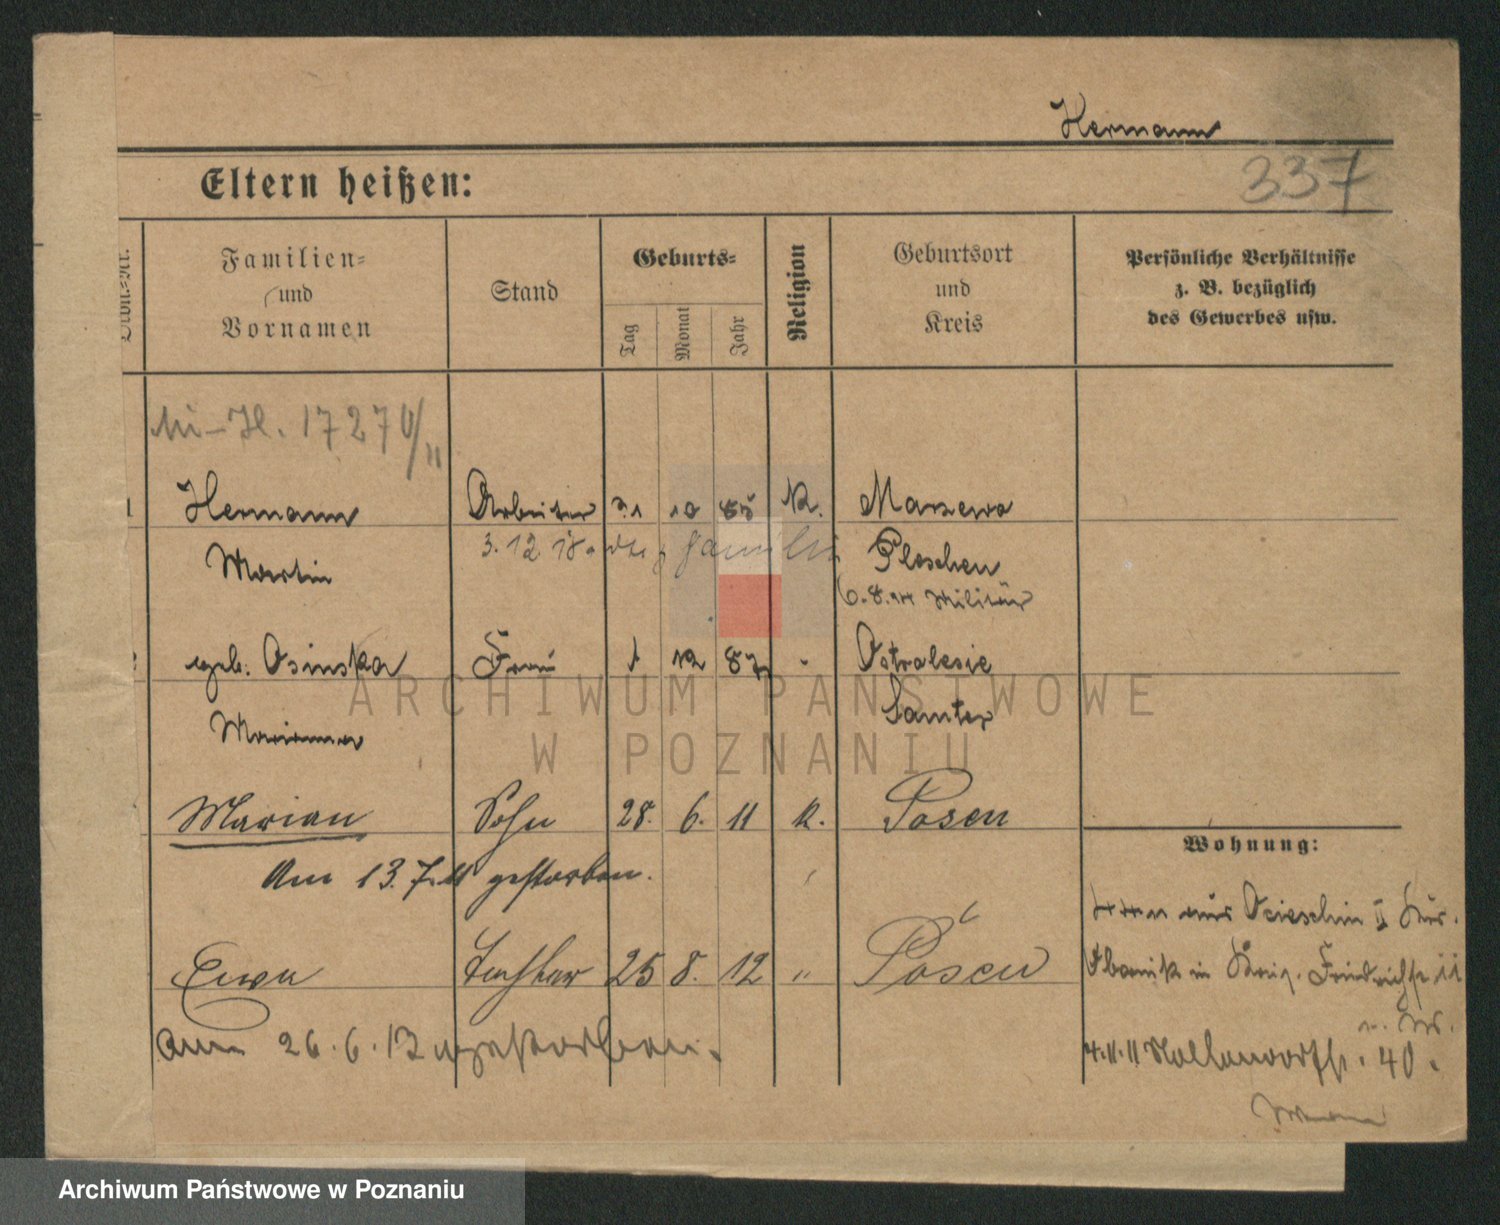 Hermann
337
Eltern heißen:
Familien=
und
Vornamen
Stand
Geburts=
Tag
Monat
Jahr
Religion
Geburtsort
und
Kreis
Persönliche Verhältnisse
z. B. bezüglich
des Gewerbes usw.
Hermann Arbeiter 10 85 K. Marzewo
3.12.18 Familie
Martin Pleschen
6.8. Militär
geb. Osinska Frau 1 12 87 Ostrolesie
Marianna Samter
ARCHIWUM PAŃSTWOWE
W POZNANIU
Marian Sohn 28. 6. 11 K. Posen
Am 13.7.11 gestorben.
Wohnung:
aus
Ewa Tochter 25 8. 12 " Posen
Obornik in
am 26.6.13 gestorben.
4.11.11 40.
Archiwum Państwowe w Poznaniu